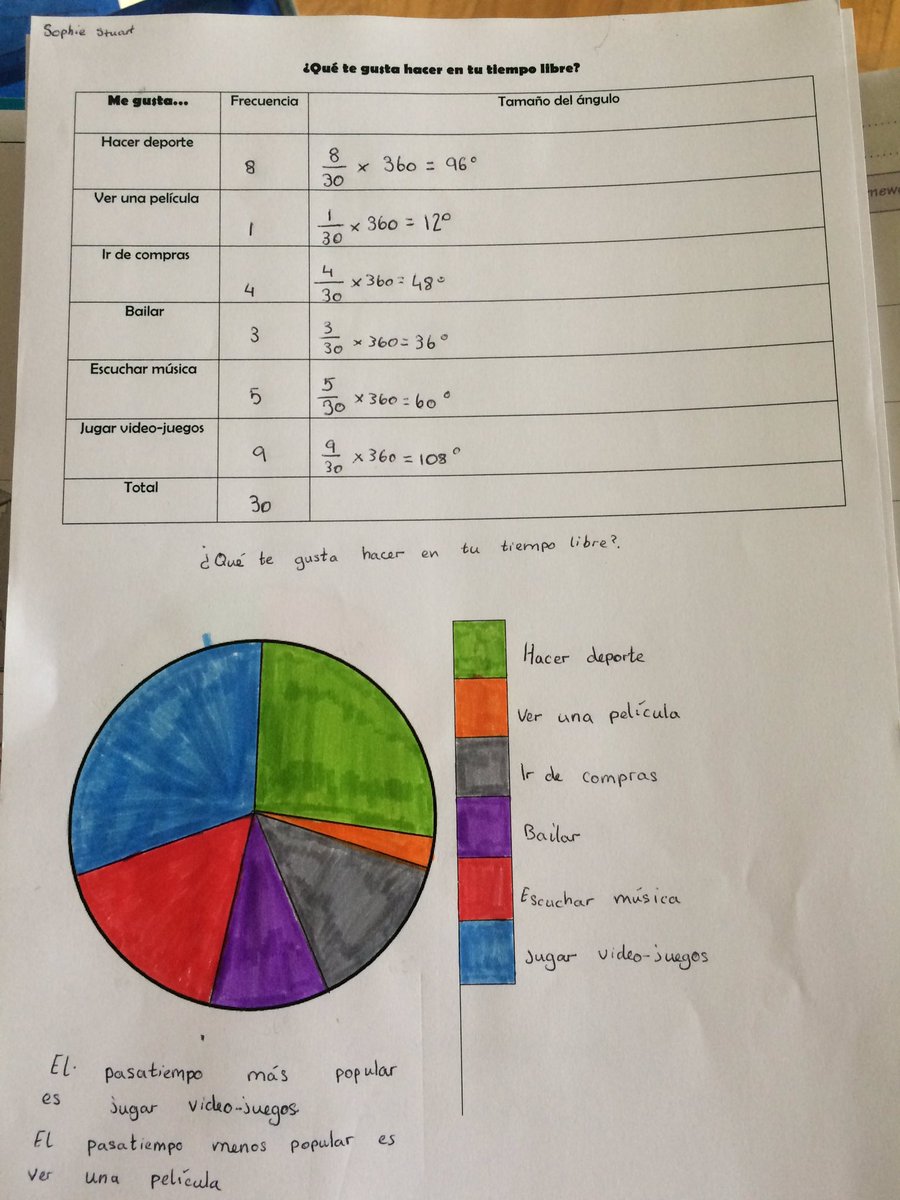 Sophie Stuart
¿Qué te gusta hacer en tu tiempo libre?
Me gusta... Frecuencia Tamaño del ángulo
Hacer deporte 8 8/30 x 360 = 96°
Ver una película 1 1/30 x 360 = 12°
Ir de compras 4 4/30 x 360 = 48°
Bailar 3 3/30 x 360 = 36°
Escuchar música 5 5/30 x 360 = 60°
Jugar video-juegos 9 9/30 x 360 = 108°
Total 30
¿Qué te gusta hacer en tu tiempo libre?.
Hacer deporte
Ver una película
Ir de compras
Bailar
Escuchar música
Jugar video-juegos
El. pasatiempo más popular
es jugar video-juegos
El pasatiempo menos popular es
ver una película